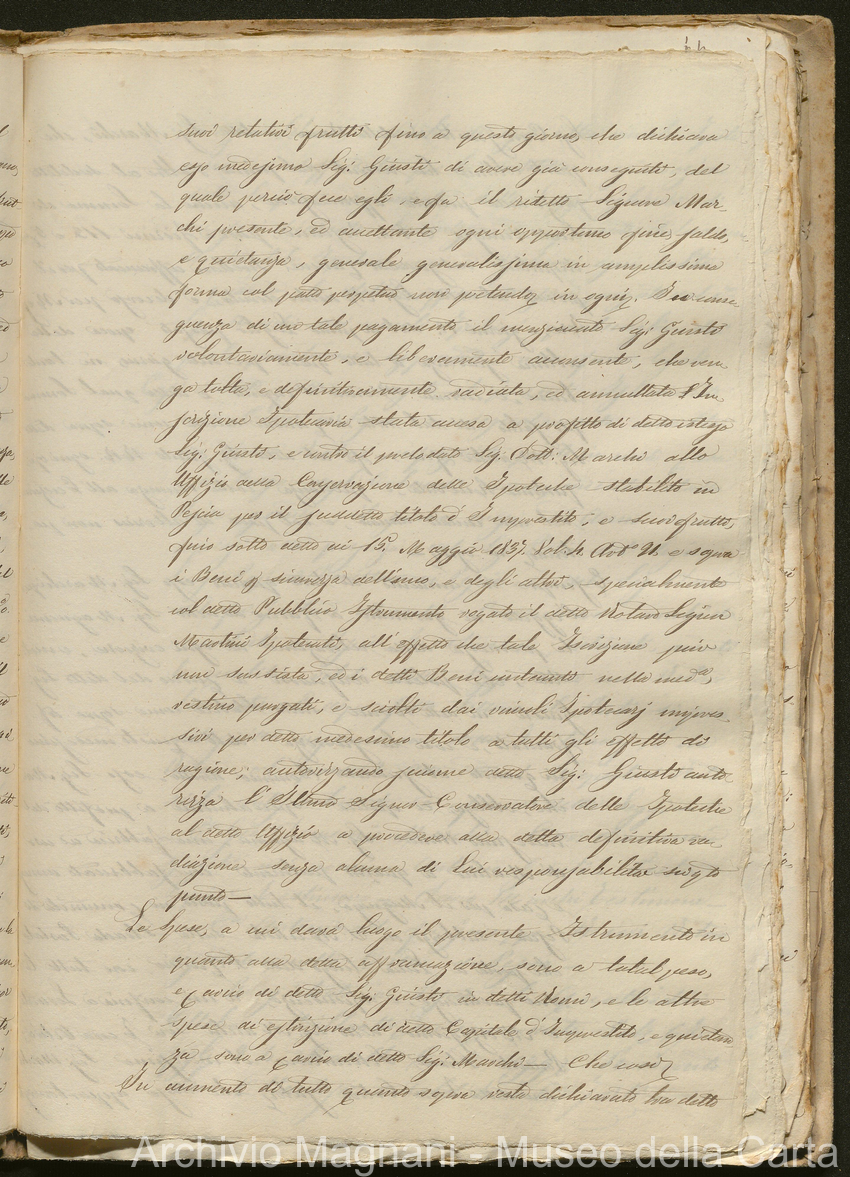 suoi relativi frutti fino a questo giorno, che dichiara
esso medesimo Sig: Giusti di avere già conseguito, del
quale perciò fece egli, e fa il ridetto Signore Mar-
chi presente, ed accettante ogni opportuno fine, saldo,
e quietanza, generale generalissima in amplissima
forma col patto perpetuo non petendo in ogni. In conse
guenza di un tale pagamento il menzionato Sig: Giusti
volontariamente, e liberamente acconsente, che ven
ga tolta, e definitivamente radiata, ed annullata l'In-
scrizione Ipotecaria stata accesa a profitto di detto istesso
Sig: Giusti, e contro il prelodato Sig. Dott: Marchi allo
Uffizio della Conservazione delle Ipoteche stabilito in
Pescia per il suddetto titolo d'Imprestito, e suoi frutti,
fino sotto dì 15. Maggio 1837. Vol: 4. Art° 21. e sopra
i Beni sicurezza dell'uno, e degli altri, specialmente
col detto Pubblico Istrumento rogato il detto Notaro Ser
Martini Ipotecati, all'effetto che tale Iscrizione più
non sussista, ed i detti Beni nella med.a,
restino purgati, e sciolti dai vincoli Ipotecarj impres
sivi per detto medesimo titolo a tutti gli effetti di
ragione; autorizzando siccome detto Sig: Giusti auto
rizza l'Illmo Signor Conservatore delle Ipoteche
al detto Uffizio a procedere alla detta definitiva ra
diazione senza alcuna di Lui responsabilità su qto
punto —
Le spese, a cui darà luogo il presente Istrumento in
quanto alla detta affrancazione, sono a total peso,
e carico di detto Sig: Giusti in detti Nomi, e le altre
spese di estinzione di detto Capitale d'Imprestito, e quietan
za sono a carico di detto Sig: Marchi — Che così
In aumento di tutto quanto sopra resta dichiarato ha detto
Archivio Magnani - Museo della Carta